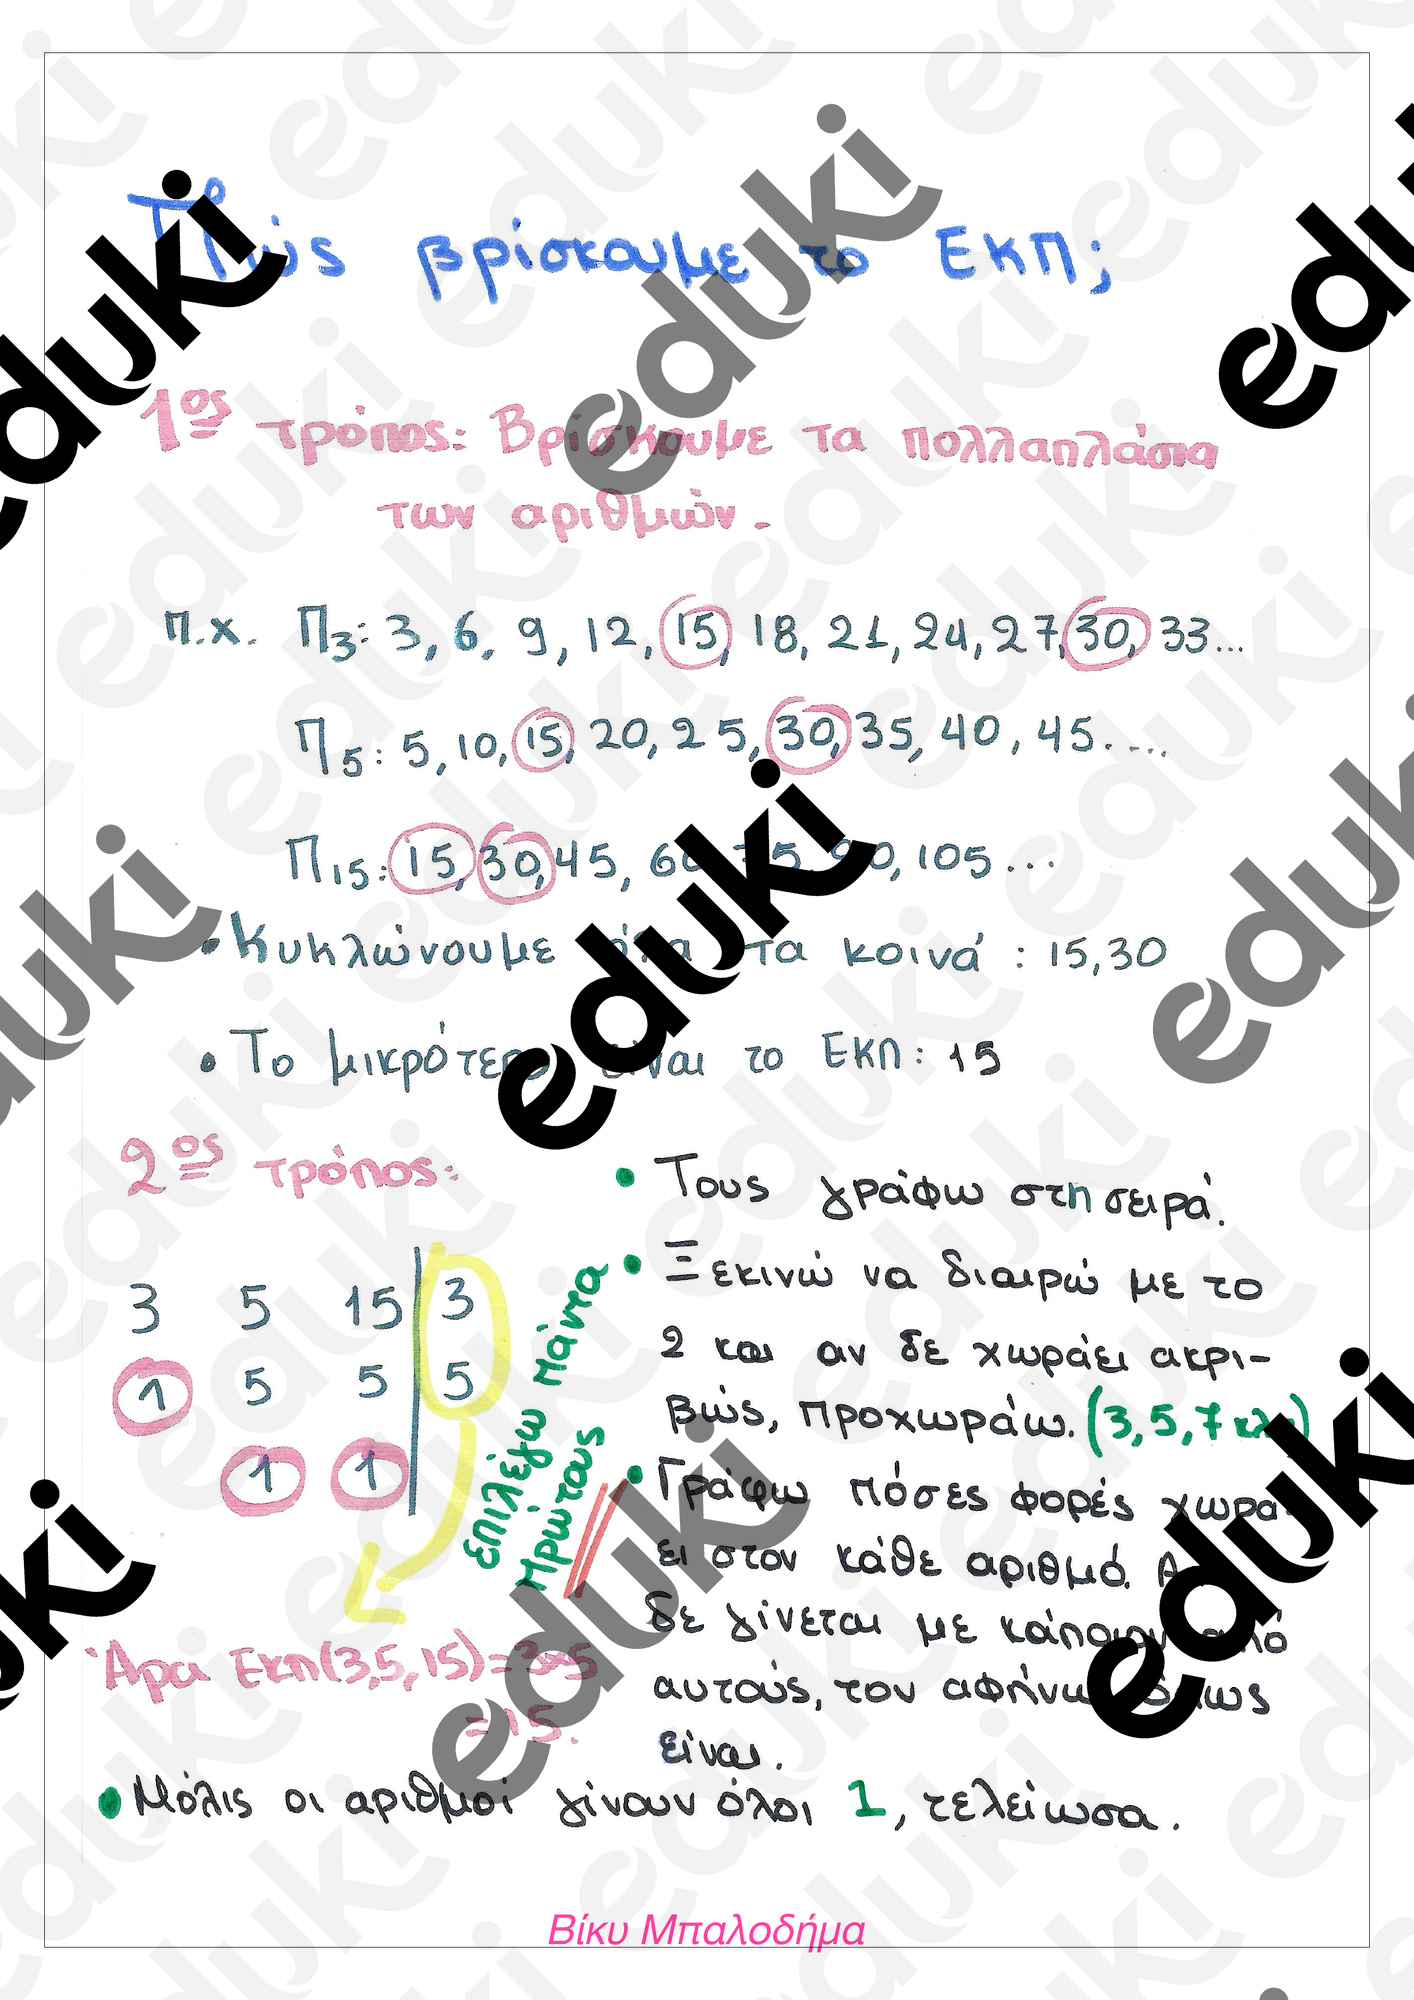 Πώς βρίσκουμε το ΕΚΠ;
1ος τρόπος: Βρίσκουμε τα πολλαπλάσια
των αριθμών.
π.χ. Π3: 3, 6, 9, 12, 15, 18, 21, 24, 27, 30, 33...
Π5: 5, 10, 15, 20, 25, 30, 35, 40, 45....
Π15: 15, 30, 45, 60, 75, 90, 105...
• Κυκλώνουμε όλα τα κοινά: 15, 30
• Το μικρότερο είναι το ΕΚΠ: 15
2ος τρόπος:
3 5 15 3
1 5 5 5
1 1
επιλέγω πάντα
πρώτους
Άρα Εκπ(3,5,15)=3×5
=15.
• Τους γράφω στη σειρά.
• Ξεκινώ να διαιρώ με το
2 και αν δε χωράει ακρι-
βώς, προχωράω. (3,5,7 κλπ)
• Γράφω πόσες φορές χωρά-
ει στον κάθε αριθμό. Αν
δε γίνεται με κάποιον από
αυτούς, τον αφήνω όπως
είναι.
• Μόλις οι αριθμοί γίνουν όλοι 1, τελείωσα.
Βίκυ Μπαλοδήμα
eduki
eduki
eduki
eduki
eduki
eduki
eduki
eduki
eduki
eduki